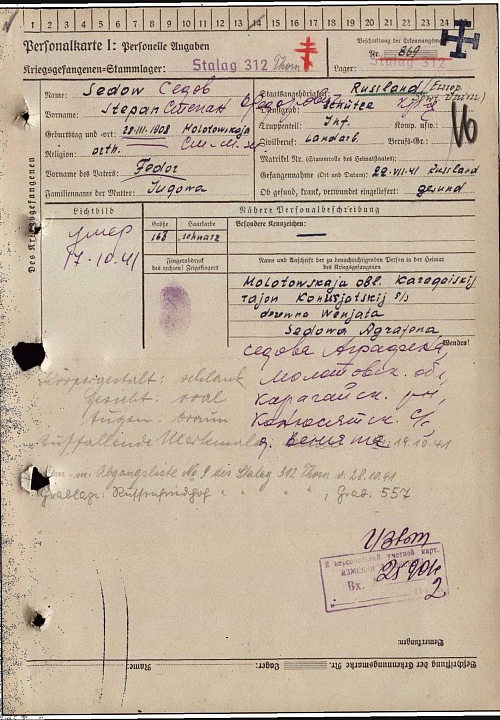 1 2 3 4 5 6 7 8 9 10 11 12 13 14 15 16 17 18 19 20 21 22 23 24 25
Personalkarte I: Personelle Angaben
Kriegsgefangenen-Stammlager: Stalag 312 Thorn
Beschriftung der Erkennungsmarke
Nr. 869
Lager: Stalag 312
Des Kriegsgefangenen
Name: Sedow Седов
Vorname: Stepan Степан
Geburtstag und -ort: 28-III-1908 Molotowskaja
Religion: orth.
Vorname des Vaters: Fedor
Familienname der Mutter: Jugowa
Staatsangehörigkeit: Russland
Dienstgrad: Schütze
Truppenteil: Inf. Komp. usw.:
Zivilberuf: Landarb. Berufs-Gr.:
V6
Matrikel Nr. (Stammrolle des Heimatstaates):
Gefangennahme (Ort und Datum): 22-VII-41 Russland
Ob gesund, krank, verwundet eingeliefert: gesund
Lichtbild
умер
17.10.41
Nähere Personalbeschreibung
Größe Haarfarbe Besondere Kennzeichen:
163 schwarz
Fingerabdruck
des rechten! Zeigefingers
Name und Anschrift der zu benachrichtigenden Person in der Heimat
des Kriegsgefangenen
Molotowskaja obl. Karagaiskij
rajon Konusjatskij s/s
Wenjata
Sedowa Agrafena
Wenden!
Седова Аграфена,
Körpergestalt: schlank
Молотовск. об,
Gesicht: oval
Карагайск. рн,
Augen: braun
Auffallende Merkmale
д. Венята
19.10.41
Abgangsliste No 9 des Stalag 312 Thorn v. 28.10.41
Grablage: Russenfriedhof " " " , Grab: 557
К персональной учетной карт.
Вх.
2
Bemerkungen:
Beschriftung der Erkennungsmarke Nr. Lager: Name: